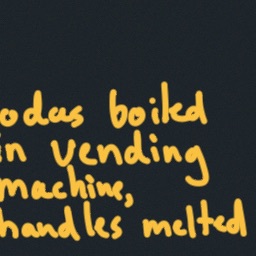 odas boiled
in vending
machine,
handles melted